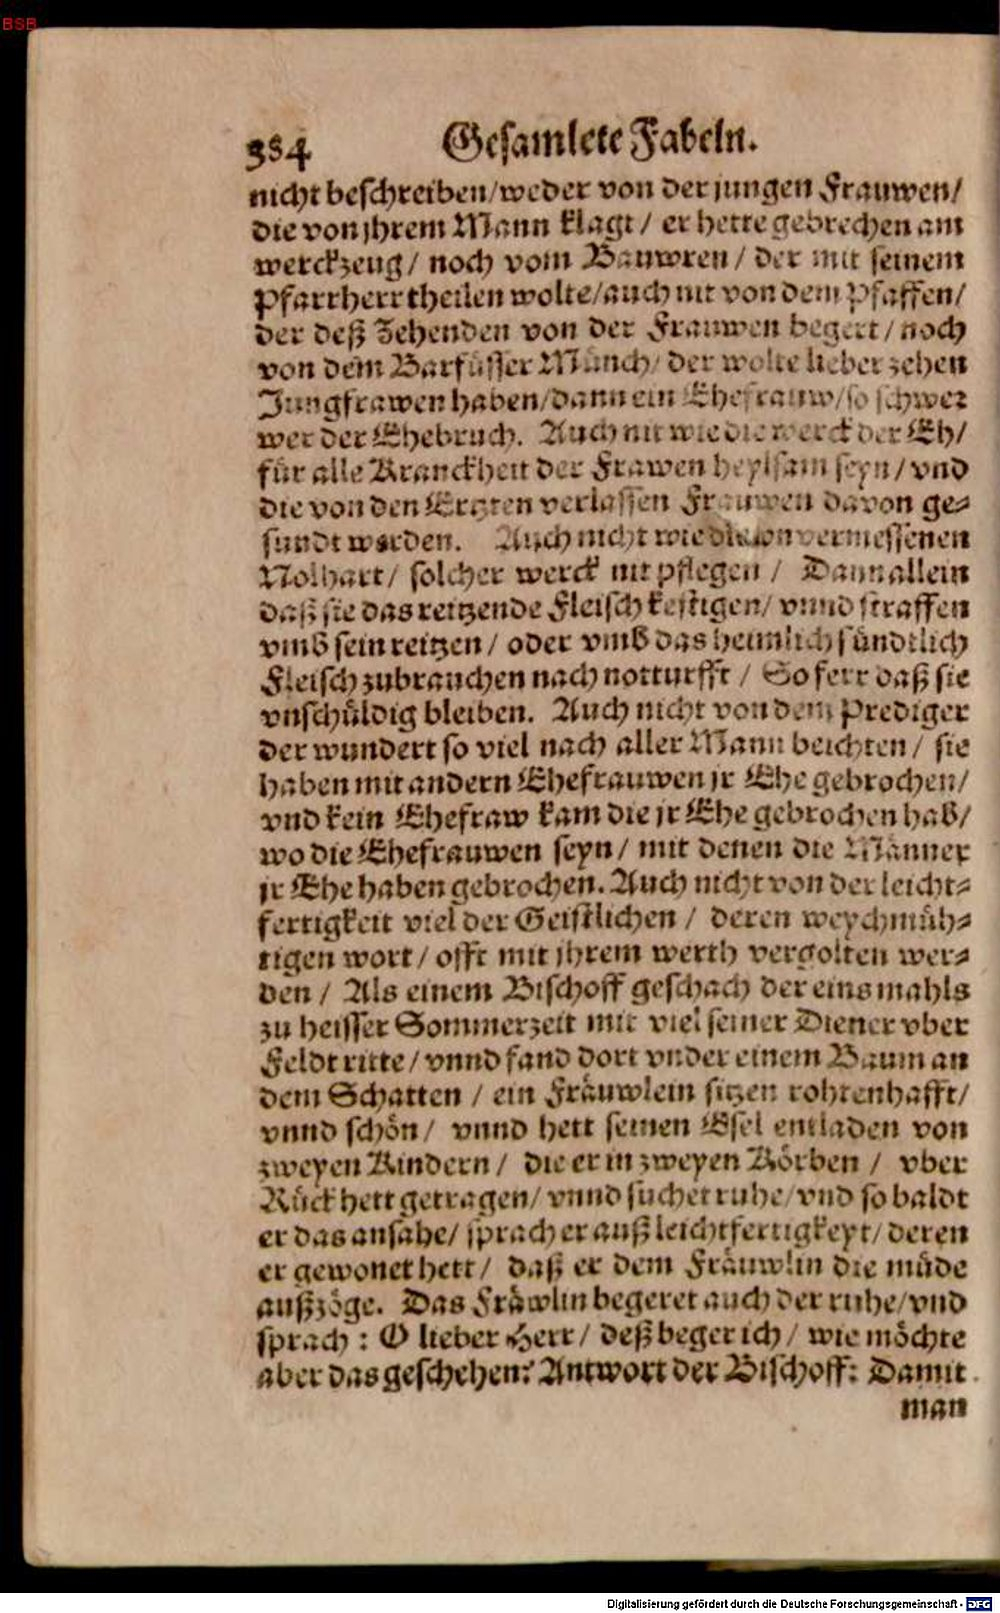 BSB
384 Gesamlete Fabeln.
nicht beschreiben/weder von der jungen Frauwen/
die von jhrem Mann klagt/ er hette gebrechen am
werckzeug/ noch vom Bauwren/ der mit seinem
Pfarrherr theilen wolte/auch nit von dem Pfaffen/
der deß Zehenden von der Frauwen begert/noch
von dem Barfüsser Münch/ der wolte lieber zehen
Jungfrawen haben/dann ein Ehefrauw/so schwer
wer der Ehebruch. Auch nit wie die werck der Eh/
für alle Kranckheit der Frawen heylsam seyn/vnd
die von den Ertzten verlassen Frauwen davon ge-
sundt werden. Auch nicht wie die von vermessenen
Nolhart/ solcher werck nit pflegen/ Dann allein
daß sie das reitzende Fleisch kestigen/ vnnd straffen
vmb sein reitzen/ oder vmb das heimlich sündtlich
Fleisch zubrauchen nach notturfft/ So ferr daß sie
vnschüldig bleiben. Auch nicht von dem Prediger
der wundert so viel nach aller Mann beichten/ sie
haben mit andern Ehefrauwen jr Ehe gebrochen/
vnd kein Ehefraw kam die jr Ehe gebrochen hab/
wo die Ehefrauwen seyn/ mit denen die Männer
jr Ehe haben gebrochen. Auch nicht von der leicht-
fertigkeit viel der Geistlichen/ deren weychmüh-
tigen wort/ offt mit jhrem werth vergolten wer-
den/ Als einem Bischoff geschach der eins mahls
zu heisser Sommerzeit mit viel seiner Diener vber
Feldt ritte/vnnd fand dort vnder einem Baum an
dem Schatten/ ein Fräuwlein sitzen rohtenhafft/
vnnd schön/ vnnd hett seinen Esel entladen von
zweyen Kindern/ die er in zweyen Körben/ vber
Rück hett getragen/ vnnd suchet ruhe/vnd so baldt
er das ansahe/ sprach er auß leichtfertigkeyt/ deren
er gewonet hett/ daß er dem Fräuwlin die müde
außzöge. Das Fräwlin begeret auch der ruhe/vnd
sprach: O lieber Herr/ deß beger ich/ wie möchte
aber das geschehen? Antwort der Bischoff: Damit
man
Digitalisierung gefördert durch die Deutsche Forschungsgemeinschaft - DFG